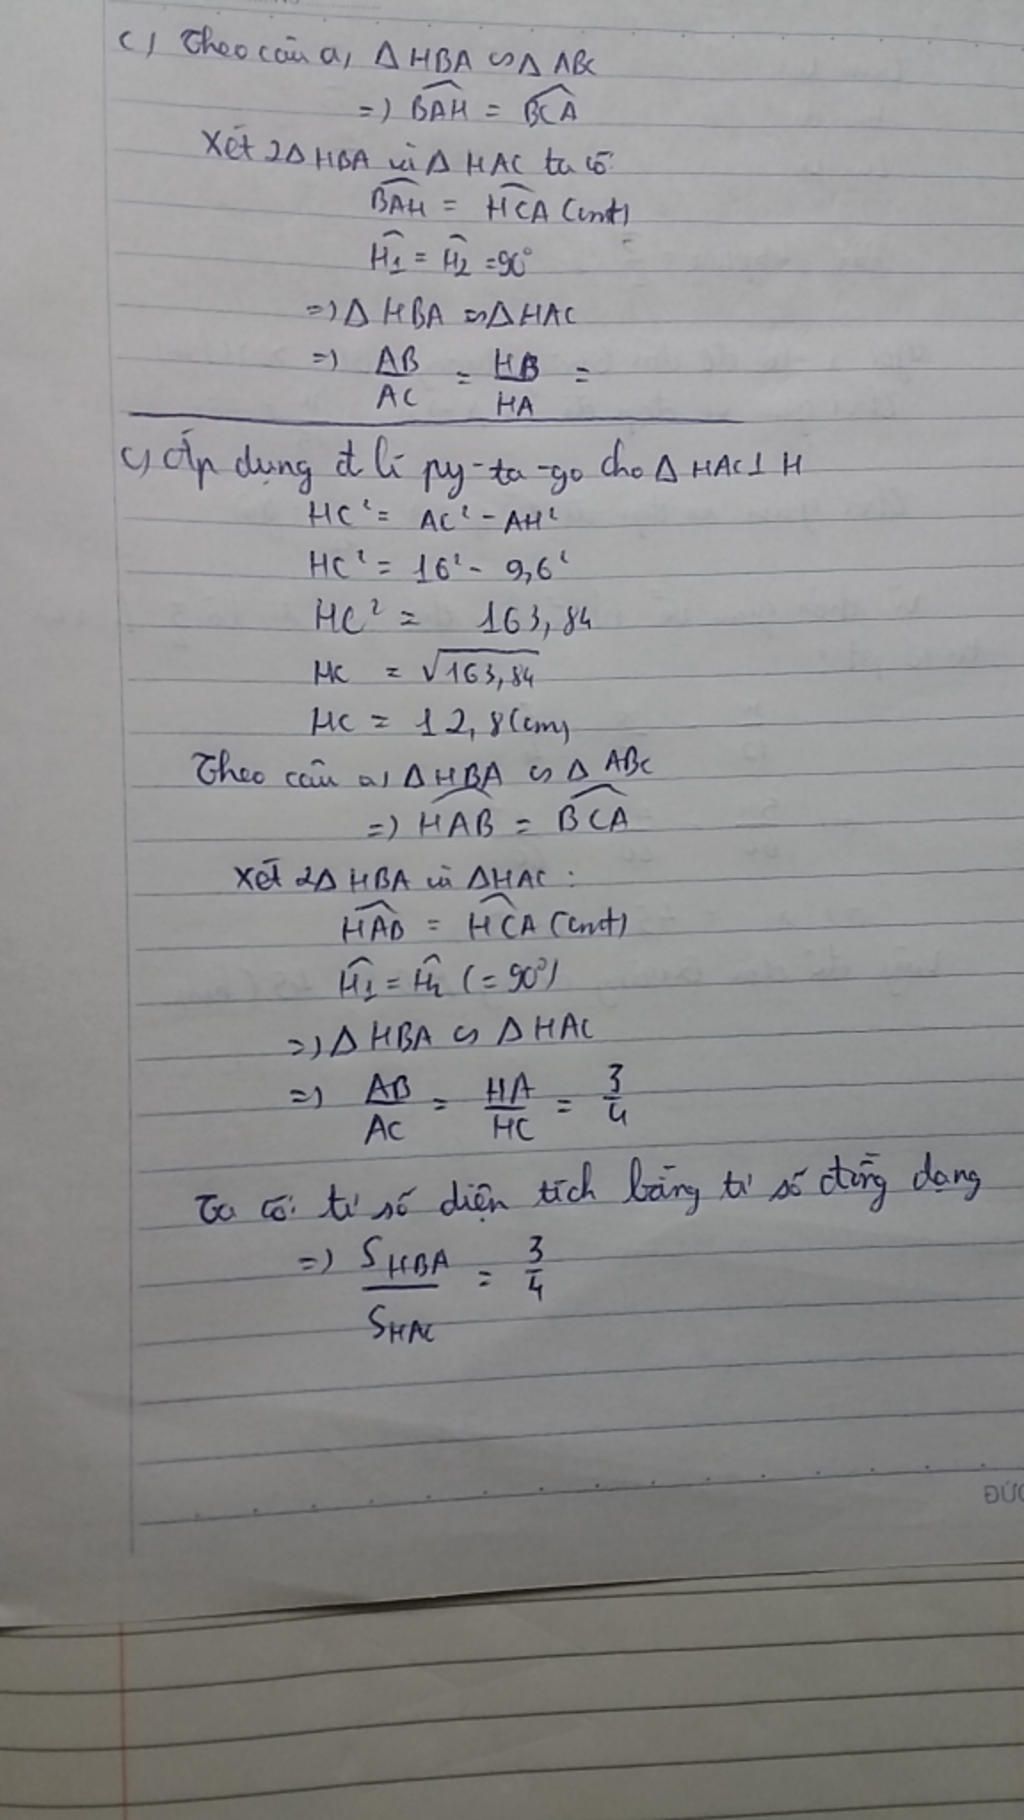 c) Theo câu a, ΔHBA ∽ Δ ABC
=) BAH = BCA
Xét 2Δ HBA và Δ HAC ta có:
BAH = HCA (cmt)
H1 = H2 = 90°
=) Δ HBA ∽ Δ HAC
=) AB/AC = HB/HA =
c) Áp dụng đ lí py-ta-go cho Δ HAC ⊥ H
HC² = AC² - AH²
HC² = 16² - 9,6²
HC² = 163,84
HC = √163,84
HC = 12,8(cm)
Theo câu a, Δ HBA ∽ Δ ABC
=) HAB = BCA
Xét 2Δ HBA và ΔHAC :
HAB = HCA (cmt)
H1 = H2 (= 90°)
=) Δ HBA ∽ Δ HAC
=) AB/AC = HA/HC = 3/4
Ta có: tỉ số diện tích bằng tỉ số đồng dạng
=) SHBA/SHAC = 3/4
ĐỨC